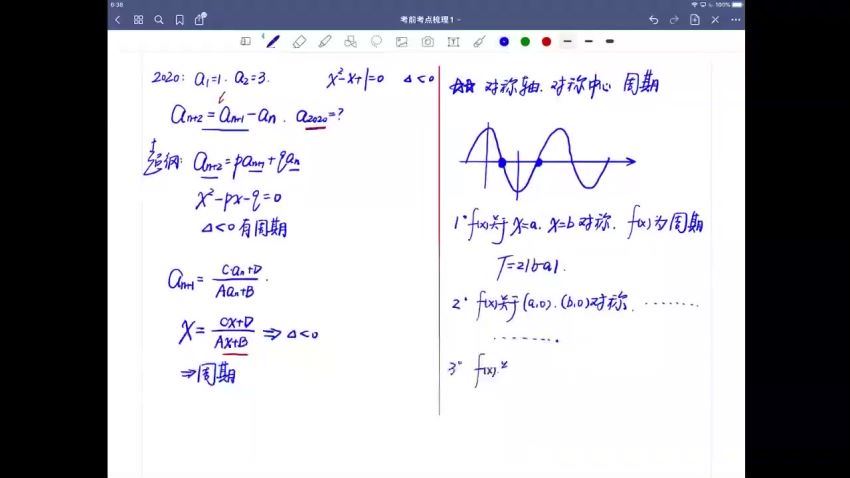 6:38
100%
考前考点梳理1
2020: a₁=1. a₂=3. x²-x+1=0 Δ<0
aₙ₊₂=aₙ₊₁-aₙ. a₂₀₂₀=?
超纲: aₙ₊₂=paₙ₊₁+qaₙ
x²-px-q=0
Δ<0有周期
aₙ₊₁= Caₙ+D / Aaₙ+B .
x= Cx+D / Ax+B ⇒ Δ<0
⇒周期
☆☆ 对称轴. 对称中心 周期
1° f(x)关于x=a. x=b对称. f(x)为周期
T=2|b-a|.
2° f(x)关于(a,0). (b,0)对称. ········
········.
3° f(x).